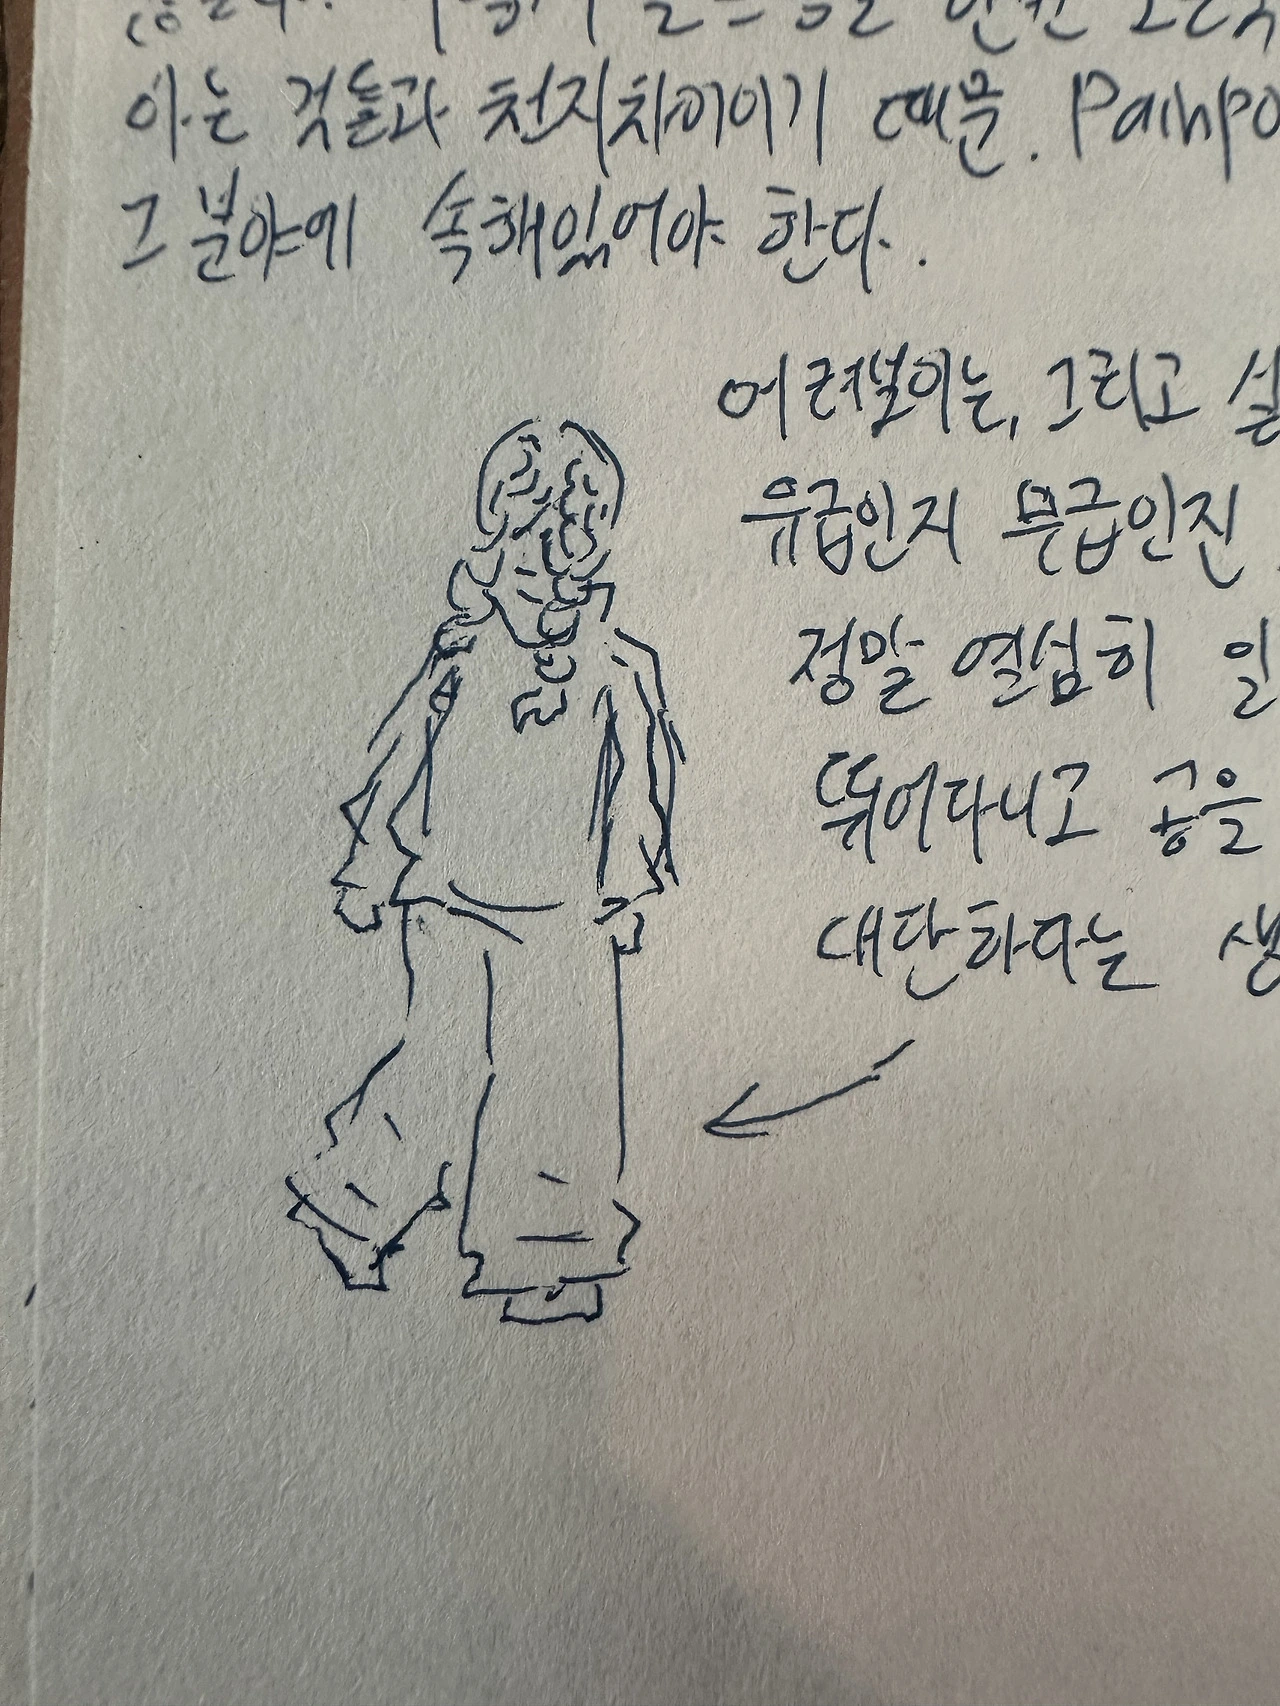 아는 것들과 천지차이이기 때문. Painpo
그 분야에 속해있어야 한다.
어려보이는, 그리고 실
유급인지 무급인진
정말 열심히 일
뛰어다니고 공을
대단하다는 생